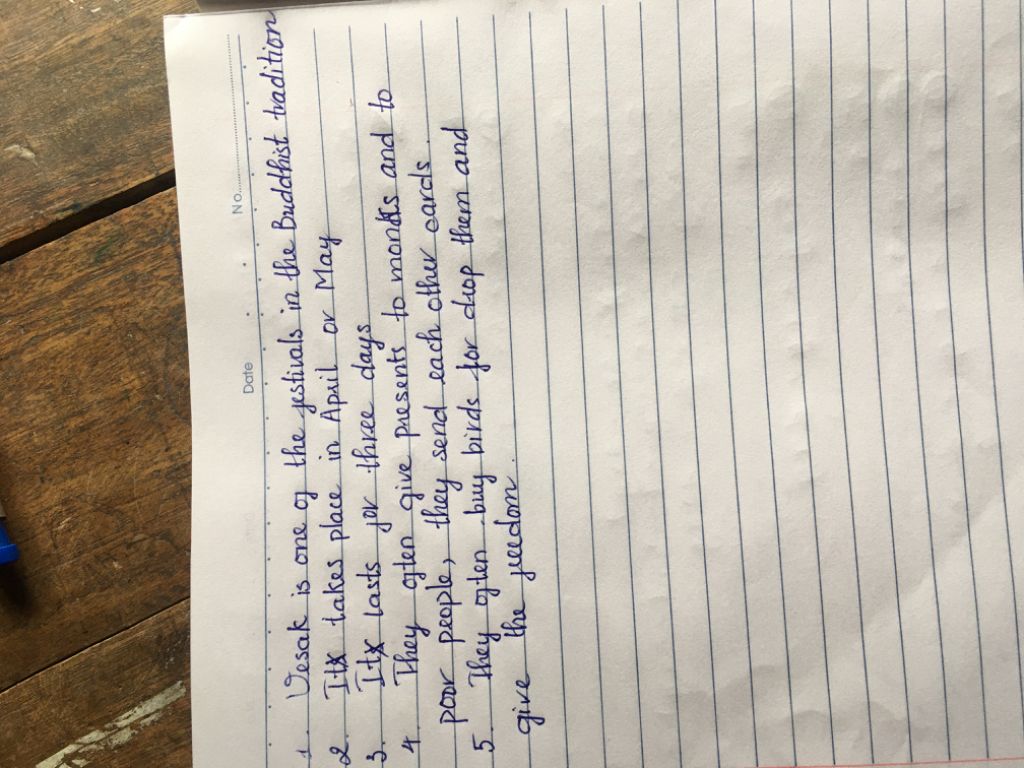 No.
Date
1. Vesak is one of the festivals in the Buddhist tradition
2. It takes place in April or May
3. It lasts for three days
4. They often give presents to monks and to
poor people, they send each other cards.
5. They often buy birds for drop them and
give the freedom.